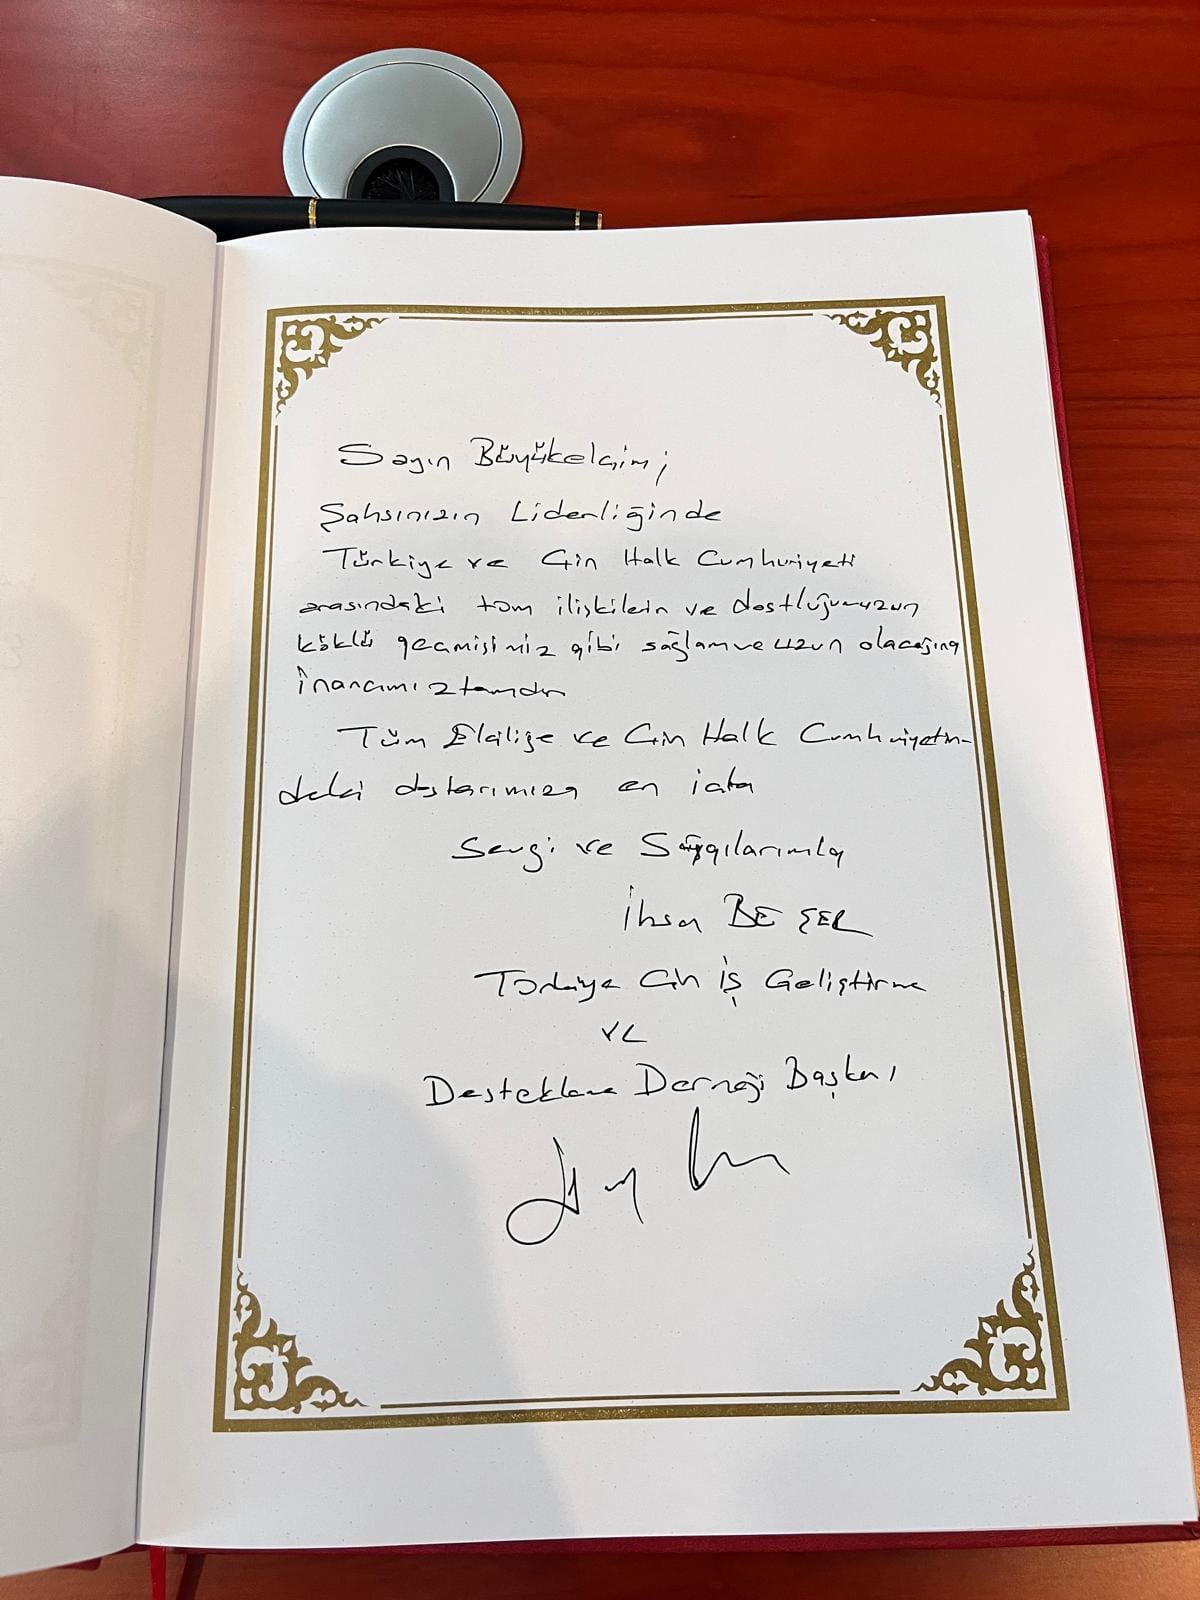 Sayın Büyükelçim;
Şahsınızın Liderliğinde
Türkiye ve Çin Halk Cumhuriyeti
arasındaki tüm ilişkilein ve dostluğumuzun
köklü geçmişimiz gibi sağlam ve uzun olacağına
inancımız tamdır
Tüm Elçiliğe ve Çin Halk Cumhuriyetin-
deki dostlarımıza en içten
Sevgi ve Saygılarımla
İhsan BEŞER
Türkiye Çin İş Geliştirme
ve
Destekleme Derneği Başkanı